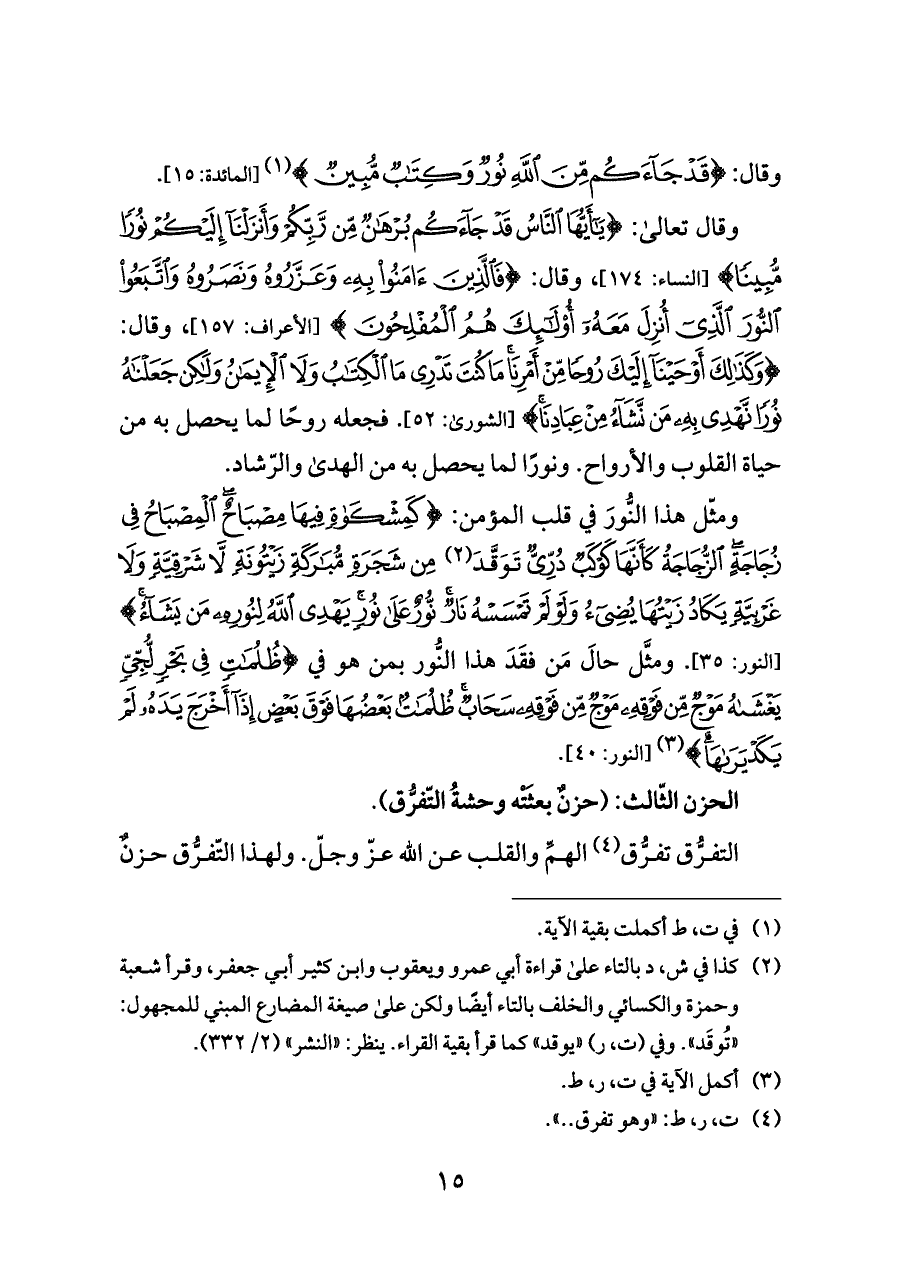 وقال: ﴿قَدْ جَآءَكُم مِّنَ ٱللَّهِ نُورٌ وَكِتَٰبٌ مُّبِينٌ ﴾(١) [المائدة: ١٥].
وقال تعالىٰ: ﴿يَٰٓأَيُّهَا ٱلنَّاسُ قَدْ جَآءَكُم بُرْهَٰنٌ مِّن رَّبِّكُمْ وَأَنزَلْنَآ إِلَيْكُمْ نُورًا
مُّبِينًا﴾ [النساء: ١٧٤]، وقال: ﴿فَٱلَّذِينَ ءَامَنُوا۟ بِهِۦ وَعَزَّرُوهُ وَنَصَرُوهُ وَٱتَّبَعُوا۟
ٱلنُّورَ ٱلَّذِىٓ أُنزِلَ مَعَهُۥٓ أُو۟لَٰٓئِكَ هُمُ ٱلْمُفْلِحُونَ ﴾ [الأعراف: ١٥٧]، وقال:
﴿وَكَذَٰلِكَ أَوْحَيْنَآ إِلَيْكَ رُوحًا مِّنْ أَمْرِنَا ۚ مَا كُنتَ تَدْرِى مَا ٱلْكِتَٰبُ وَلَا ٱلْإِيمَٰنُ وَلَٰكِن جَعَلْنَٰهُ
نُورًا نَّهْدِى بِهِۦ مَن نَّشَآءُ مِنْ عِبَادِنَا ۚ﴾ [الشورىٰ: ٥٢]. فجعله روحًا لما يحصل به من
حياة القلوب والأرواح. ونورًا لما يحصل به من الهدىٰ والرّشاد.
ومثّل هذا النُّورَ في قلب المؤمن: ﴿كَمِشْكَوٰةٍ فِيهَا مِصْبَاحٌ ۖ ٱلْمِصْبَاحُ فِى
زُجَاجَةٍ ۖ ٱلزُّجَاجَةُ كَأَنَّهَا كَوْكَبٌ دُرِّىٌّ تَوَقَّدَ(٢) مِن شَجَرَةٍ مُّبَٰرَكَةٍ زَيْتُونَةٍ لَّا شَرْقِيَّةٍ وَلَا
غَرْبِيَّةٍ يَكَادُ زَيْتُهَا يُضِىٓءُ وَلَوْ لَمْ تَمْسَسْهُ نَارٌ ۚ نُّورٌ عَلَىٰ نُورٍ ۗ يَهْدِى ٱللَّهُ لِنُورِهِۦ مَن يَشَآءُ ۚ﴾
[النور: ٣٥]. ومثَّل حالَ مَن فقَدَ هذا النُّور بمن هو في ﴿ظُلُمَٰتٍ فِى بَحْرٍ لُّجِّىٍّ
يَغْشَىٰهُ مَوْجٌ مِّن فَوْقِهِۦ مَوْجٌ مِّن فَوْقِهِۦ سَحَابٌ ۚ ظُلُمَٰتٌۢ بَعْضُهَا فَوْقَ بَعْضٍ إِذَآ أَخْرَجَ يَدَهُۥ لَمْ
يَكَدْ يَرَىٰهَا ۗ﴾(٣) [النور: ٤٠].
الحزن الثّالث: (حزنٌ بعثَتْه وحشةُ التّفرُّق).
التفـرُّق تفـرُّق(٤) الهـمِّ والقلـب عـن الله عـزّ وجـلّ. ولهـذا التّفـرُّق حـزنٌ
(١) في ت، ط أكملت بقية الآية.
(٢) كذا في ش، د بالتاء علىٰ قراءة أبي عمرو ويعقوب وابـن كثيـر أبـي جعفـر، وقـرأ شـعبة
وحمزة والكسائي والخلف بالتاء أيضًا ولكن علىٰ صيغة المضارع المبني للمجهول:
«تُوقَد». وفي (ت، ر) «يوقد» كما قرأ بقية القراء. ينظر: «النشر» (٢/ ٣٣٢).
(٣) أكمل الآية في ت، ر، ط.
(٤) ت، ر، ط: «وهو تفرق..».
١٥